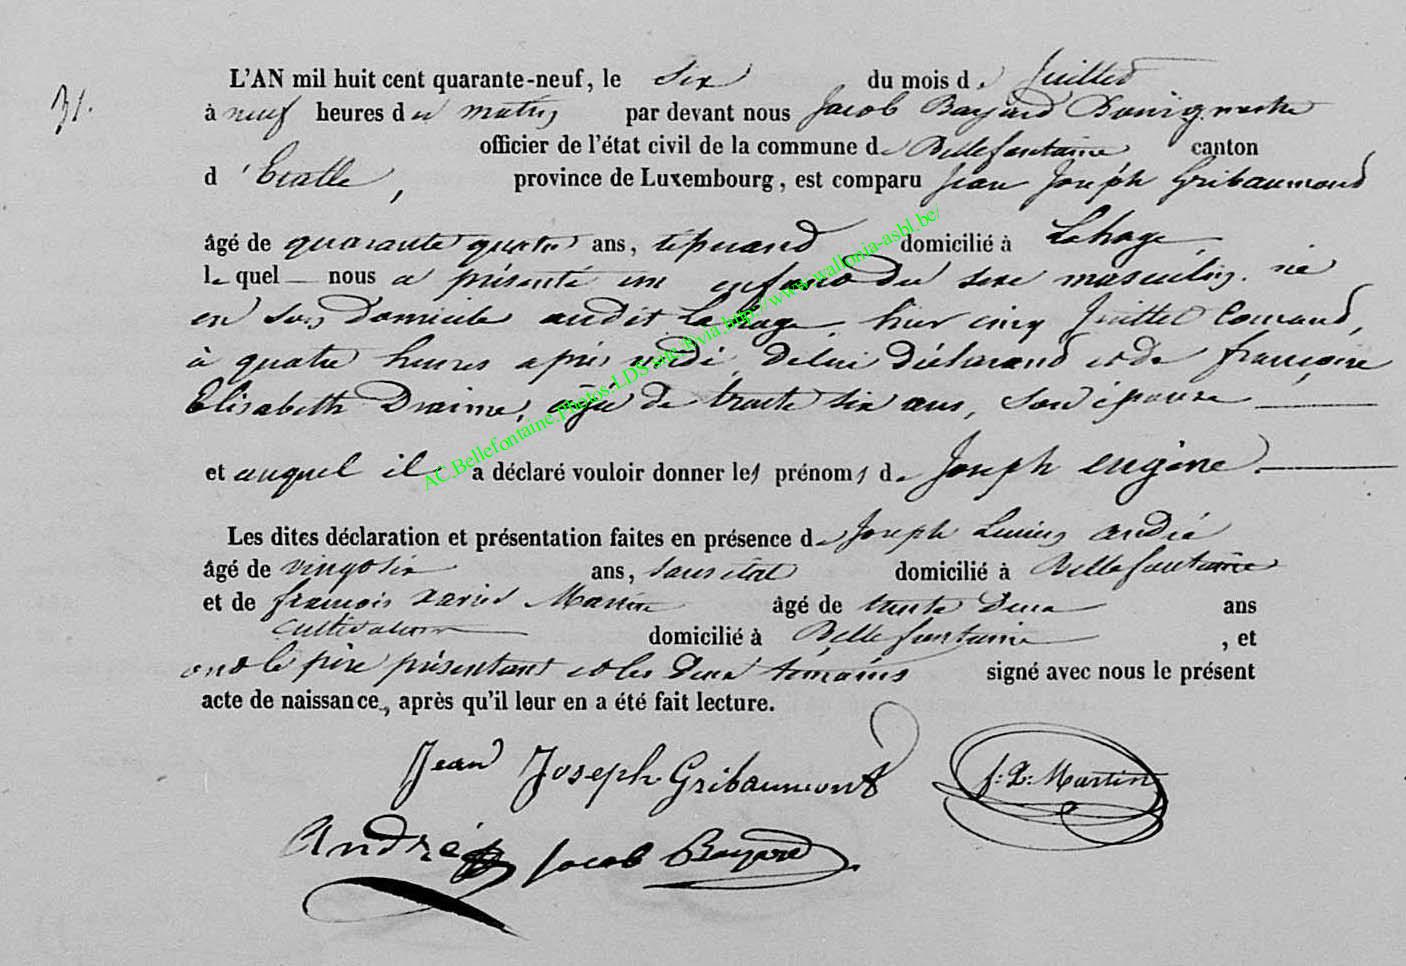 31.
L'AN mil huit cent quarante-neuf, le six du mois de Juillet
à neuf heures du matin par devant nous Jacob Bayard Bourgmestre
officier de l'état civil de la commune de Bellefontaine canton
d'Etalle, province de Luxembourg, est comparu Jean Joseph Gribaumond
âgé de quarante quatre ans, domicilié à Lahage,
le quel nous a présenté un enfant du sexe masculin, né
en son domicile audit Lahage, hier cinq Juillet Courand,
à quatre heures après midi, de lui déclarand et de françoise
Elisabeth Draime, âgée de trente six ans, son épouse
et auquel il a déclaré vouloir donner les prénoms de Joseph eugène.
Les dites déclaration et présentation faites en présence de Joseph Lucien andré
âgé de vingt six ans, sans état domicilié à Bellefontaine
et de françois xavier Martin âgé de trente deux ans
cultivateur domicilié à Bellefontaine, et
ont le père présentant et les deux témoins signé avec nous le présent
acte de naissance, après qu'il leur en a été fait lecture.
Jean Joseph Gribaumont f: X: Martin
André Jacob Bayard
AC.Bellefontaine.Photos-LDS via http://www.wallonia-asbl.be/